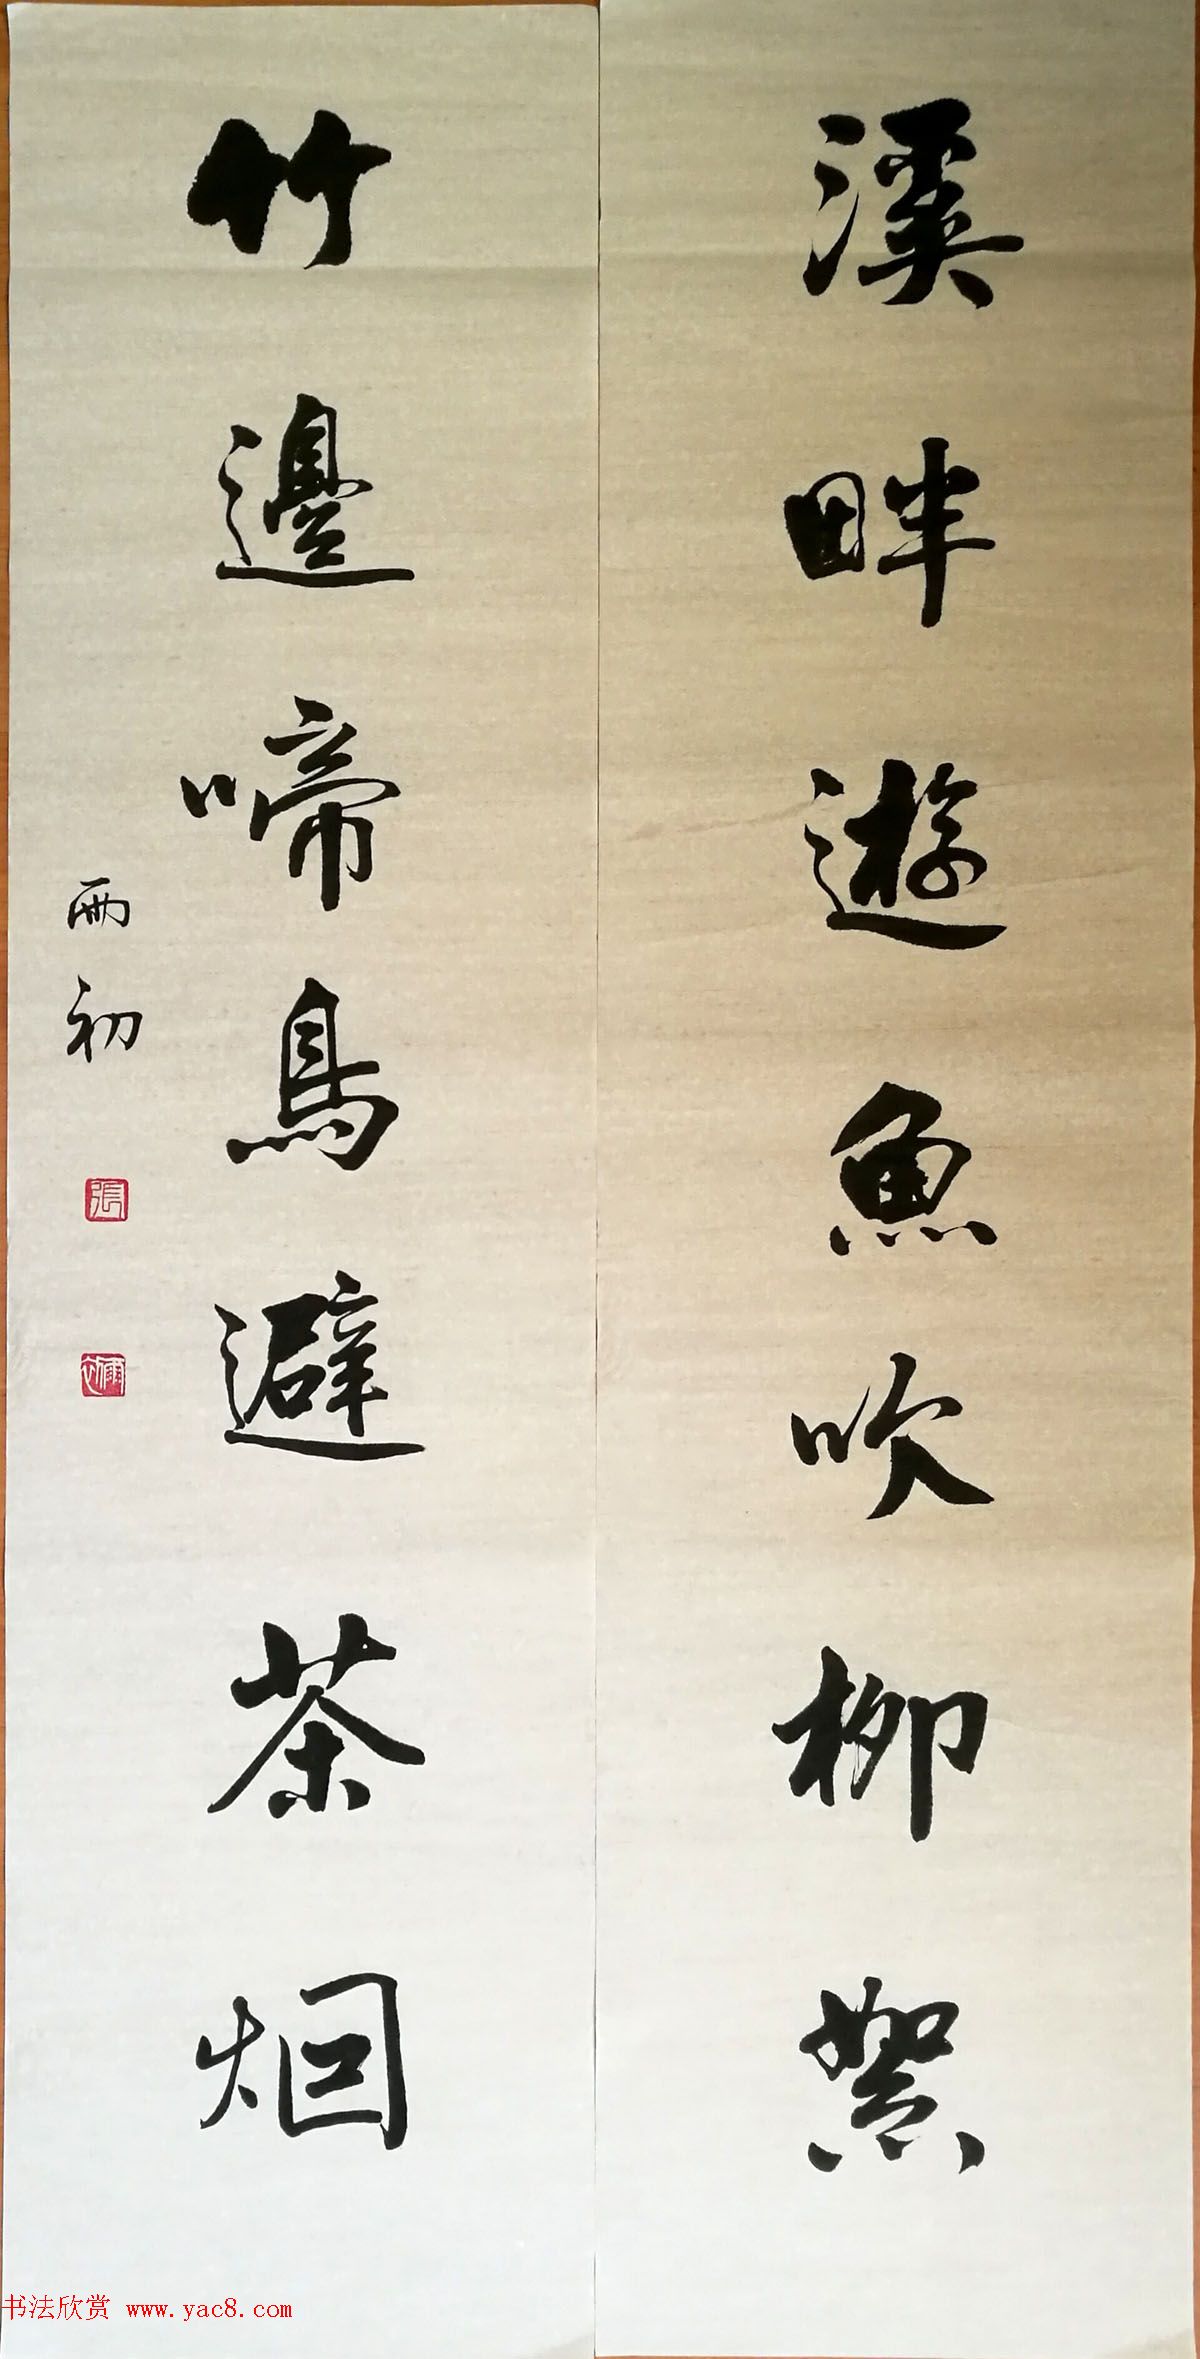 溪畔遊魚吹柳絮
竹邊啼鳥避茶烟
雨初
張
雨初
书法欣赏 www.yac8.com